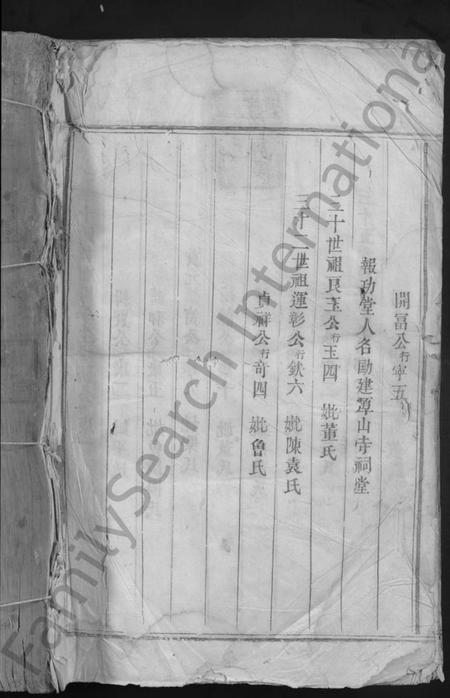 開富公行寧五
報功堂人名勛建潭山寺祠堂
三十世祖良玉公行玉四 妣董氏
三十二世祖運彰公行欽六 妣陳袁氏
貞祥公行奇四 妣魯氏
FamilySearch International